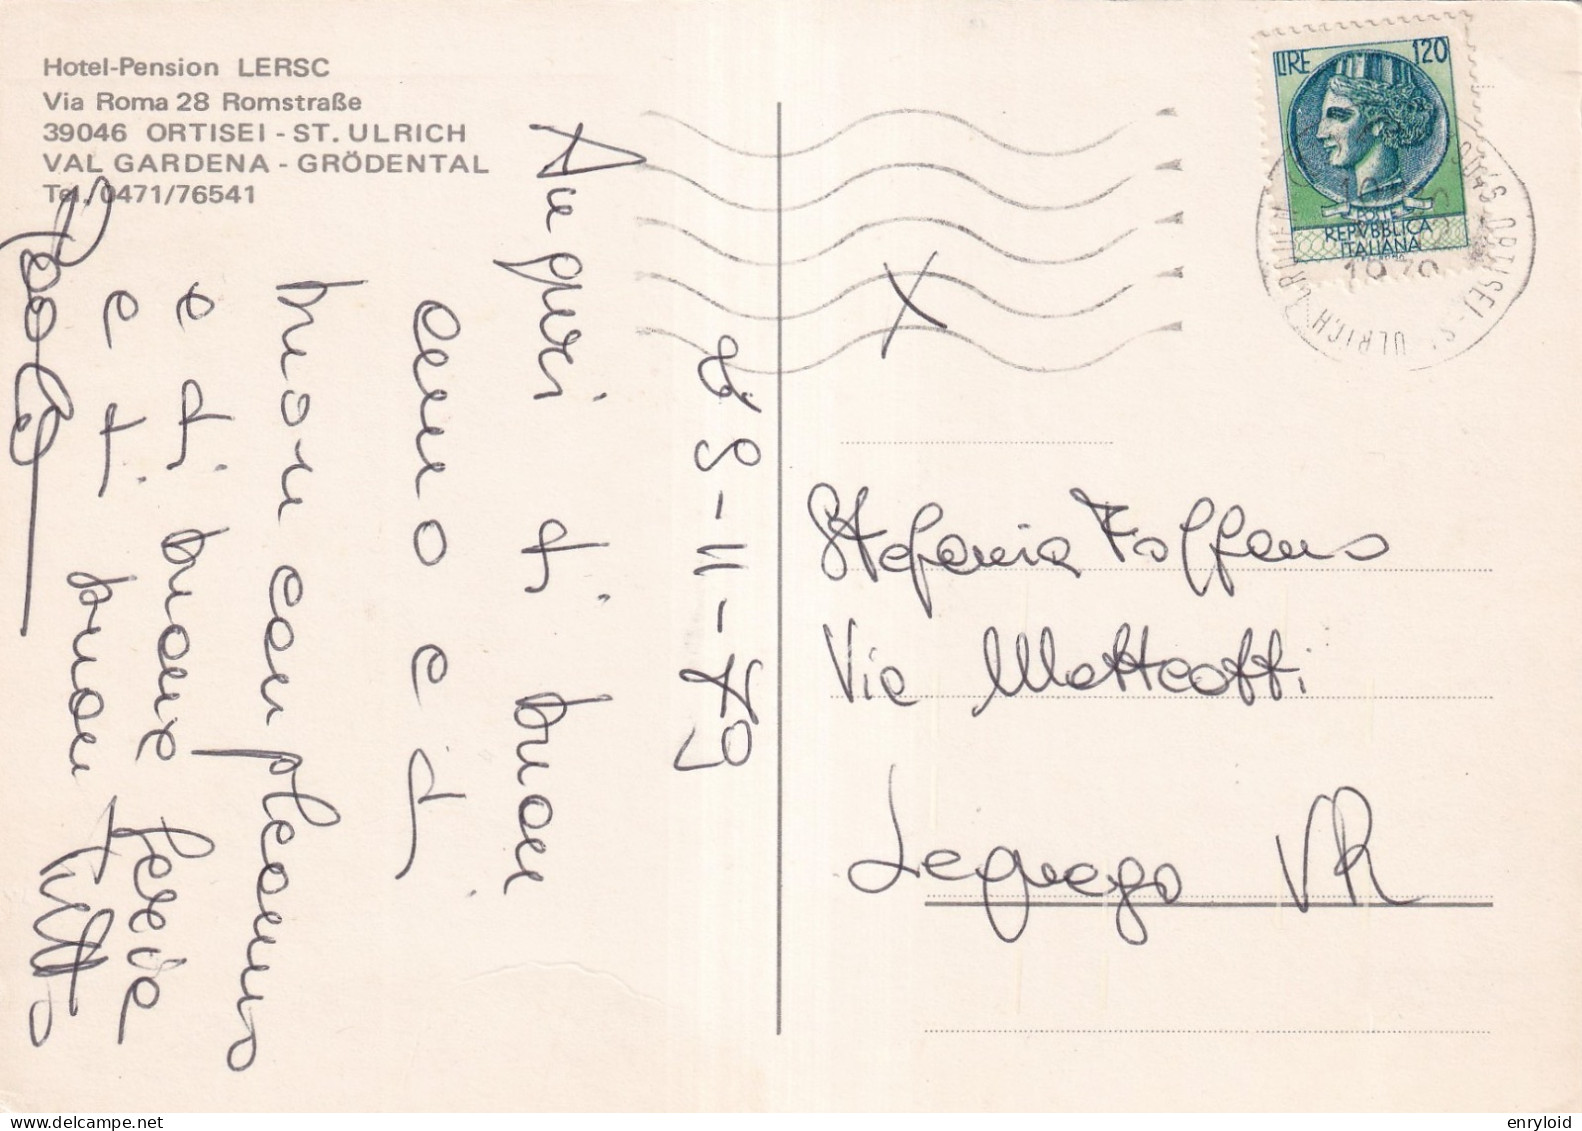 Hotel-Pension LERSC
Via Roma 28 Romstraße
39046 ORTISEI - ST. ULRICH
VAL GARDENA - GRÖDENTAL
Tel. 0471/76541
LIRE 120
POSTE
REPVBBLICA
ITALIANA
ORTISEI - ST. ULRICH
8-11-79
Auguri di buon
anno e di
buon compleanno
e di buone ferie
e di buon tutto
Paola
Stefania
Via Matteotti
Legnago VR
enryloid